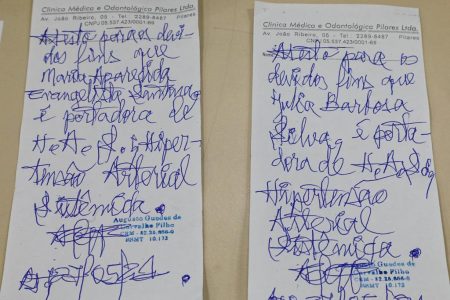 Clínica Médico e Odontológica Pilares Ltda.
Av. João Ribeiro, 05 - Tel.: 2289-8487 Pilares
CNPJ 05.537.423/0001-66
Atesto para os devi-
dos fins que
Maria Aparecida
Evangelista
é portadora de
H.A.S. Hiper-
tensão Arterial
Sistêmica
Augusto Guedes de
Carvalho Filho
Clínica Médico e Odontológica Pilares Ltda.
Av. João Ribeiro, 05 - Tel.: 2289-8487 Pilares
CNPJ 05.537.423/0001-66
Atesto para os
devidos fins que
Julia Barbosa
Silva, é porta-
dora de H.A.S.
Hipertensão
Arterial
Sistêmica
Augusto Guedes de
Carvalho Filho